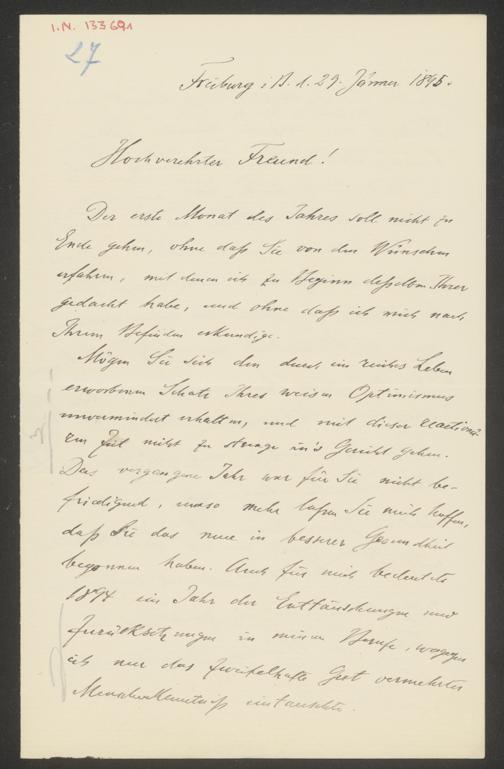 I.N. 133691
27
Freiburg i/B. d. 29. Jänner 1895.
Hochverehrter Freund!
Der erste Monat des Jahres soll nicht zu
Ende gehen, ohne daß Sie von den Wünschen
erfahren, mit denen ich zu Beginn desselben Ihrer
gedacht habe, und ohne daß ich mich nach
Ihrem Befinden erkundige.
Mögen Sie sich den durch ein reiches Leben
erworbenen Schatz Ihres weisen Optimismus
unvermindert erhalten, und mit dieser reactionä-
ren Zeit nicht zu strenge in's Gericht gehen.
Das vergangene Jahr war für Sie nicht be-
friedigend, umso mehr lassen Sie mich hoffen,
daß Sie das neue in besserer Gesundheit
begonnen haben. Auch für mich bedeutete
1894 ein Jahr der Enttäuschungen und
Zurücksetzungen in meinem Berufe, wogegen
ich nur das zweifelhafte Gut vermehrter
Menschenkenntniß eintauschte.